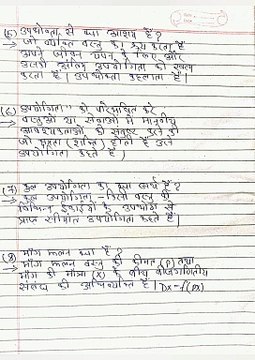 (5) उपभोक्ता से क्या आशय है?
→ जो व्यक्ति वस्तु का क्रय करता है
अपने जीवन यापन के लिए और
उसकी तुष्टिगुण उपयोगिता को खत्म
करता है। उपभोक्ता कहलाता है।
(6) उपयोगिता को परिभाषित करे
→ वस्तुओं या सेवाओं में मानवीय
आवश्यकताओं को संतुष्ट करने की
जो क्षमता (शक्ति) होती है उसे
उपयोगिता कहते हैं।
(7) कुल उपयोगिता का क्या अर्थ है?
→ कुल उपयोगिता - किसी वस्तु की
विभिन्न ईकाइयों के उपभोग से
प्राप्त सीमांत उपयोगिता कहते हैं।
(8) माँग फलन क्या है?
→ माँग फलन वस्तु की कीमत (P) तथा
माँग की मात्रा (x) के बीच बीजगणितीय
संबंध की अभिव्यक्ति है। Dx=f(px)